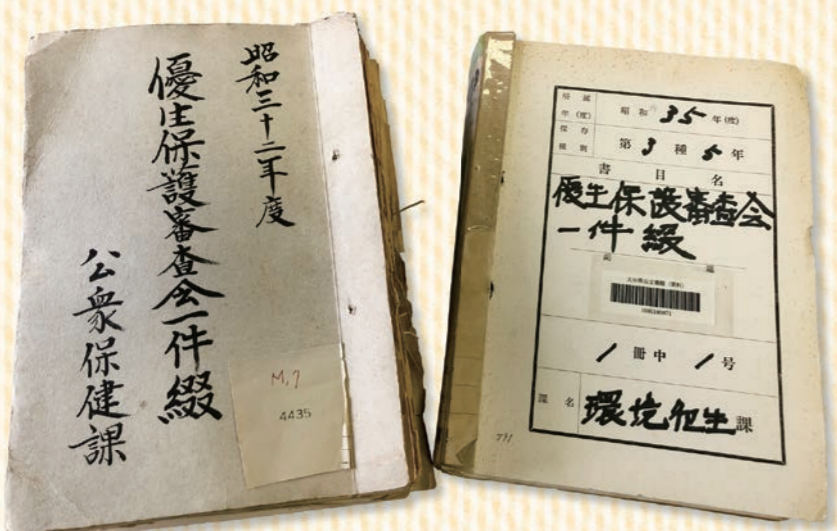 昭和三十二年度
優生保護審査会一件綴
公衆保健課
M,7
4435
所属
年(度)
昭和35年(度)
保存
種別
第3種5年
書目名
優生保護審査会
一件綴
大分県公文書館（資料）
1冊中1号
課名
環境衛生課